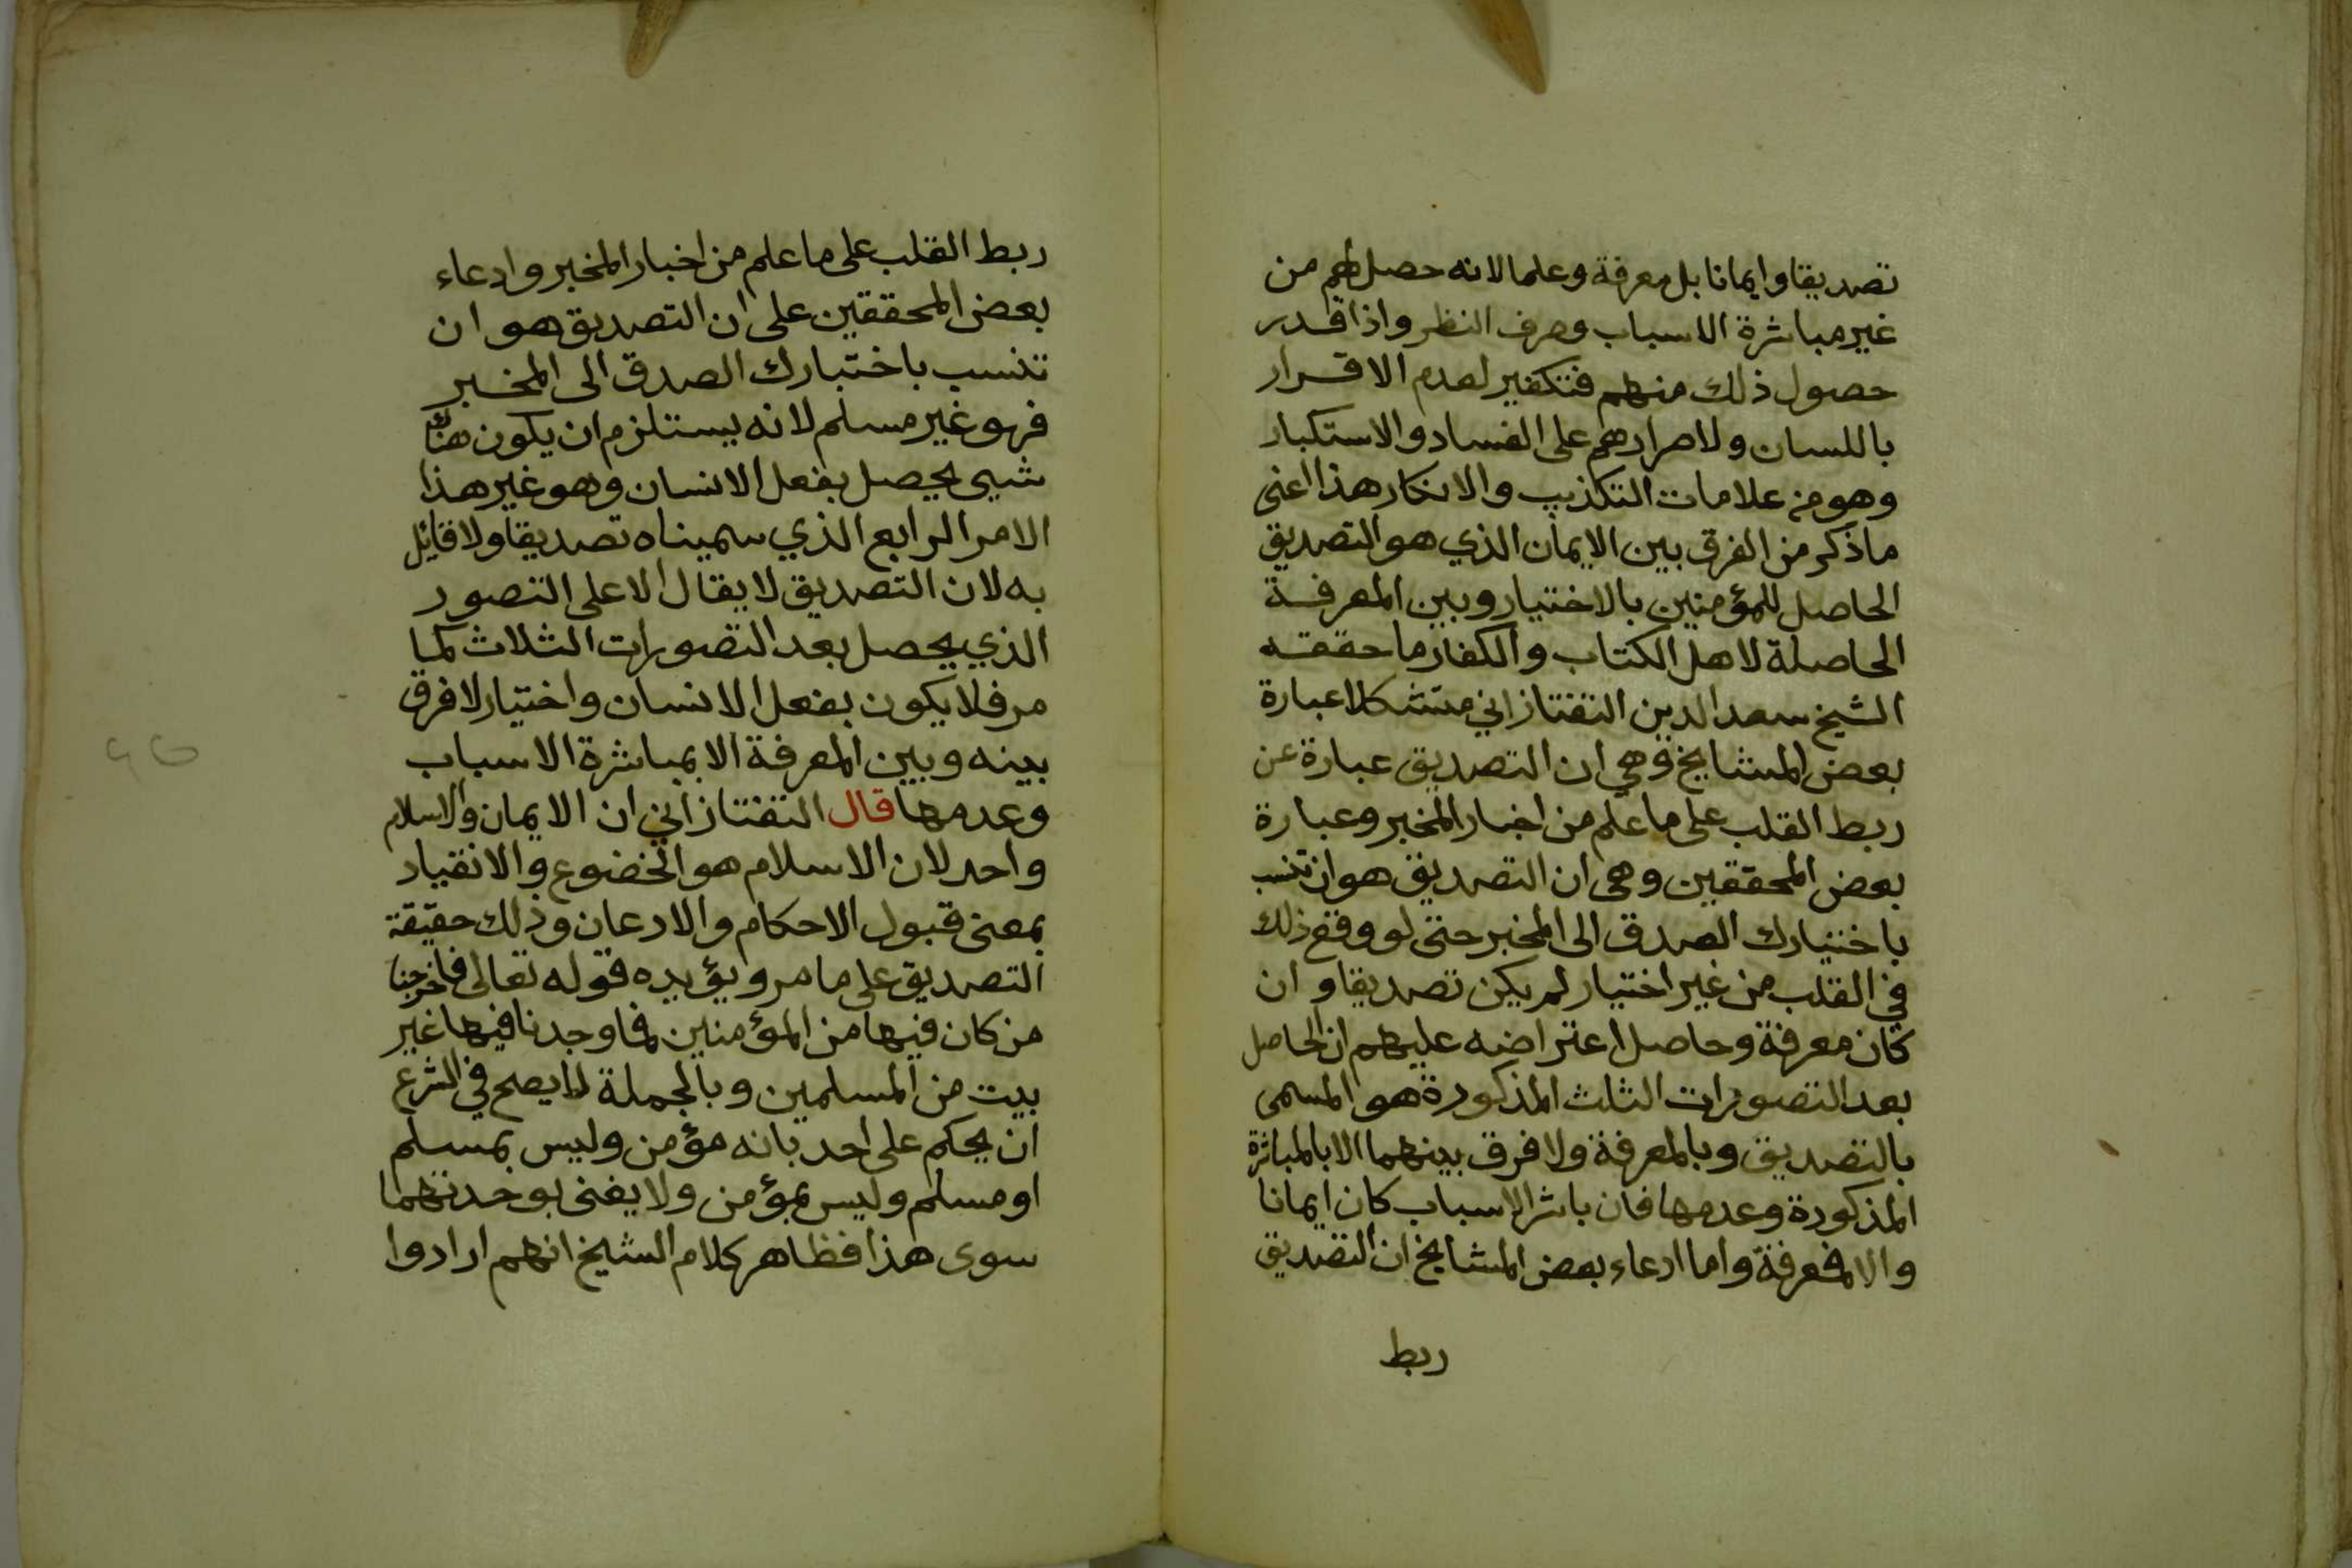 تصديقا وايمانا بل معرفة وعلما لانه حصل لهم من
غير مباشرة الاسباب وصرف النظر واذا قدر
حصول ذلك منهم فتكفير لعدم الاقرار
باللسان ولاصرارهم على الفساد والاستكبار
وهو من علامات التكذيب والانكار هذا اعنى
ماذكر من الفرق بين الايمان الذي هو التصديق
الحاصل للمؤمنين بالاختيار وبين المعرفة
الحاصلة لاهل الكتاب والكفار ما حققه
الشيخ سعد الدين التفتازاني مستشكلا عبارة
بعض المشايخ وهي ان التصديق عبارة عن
ربط القلب على ما علم من اخبار المخبر وعبارة
بعض المحققين وهى ان التصديق هو ان تنسب
باختيارك الصدق الى المخبر حتى لو وقع ذلك
في القلب من غير اختيار لم يكن تصديقا وان
كان معرفة وحاصل اعتراضه عليهم ان الحاصل
بعد التصورات الثلث المذكورة هو المسمى
بالتصديق وبالمعرفة ولا فرق بينهما الا بالمباشرة
المذكورة وعدمها فان باشر الاسباب كان ايمانا
والا فمعرفة واما ادعاء بعض المشايخ ان التصديق
ربط
ربط القلب على ما علم من اخبار المخبر وادعاء
بعض المحققين على ان التصديق هو ان
تنسب باختيارك الصدق الى المخبر
فهو غير مسلم لانه يستلزم ان يكون هناك
شيى يحصل بفعل الانسان وهو غير هذا
الامر الرابع الذي سميناه تصديقا ولا قائل
به لان التصديق لا يقال الا على التصور
الذي يحصل بعد التصورات الثلاث كما
مر فلا يكون بفعل الانسان واختيار لا فرق
بينه وبين المعرفة الا بمباشرة الاسباب
وعدمها قال التفتازاني ان الايمان والاسلام
واحد لان الاسلام هو الخضوع والانقياد
بمعنى قبول الاحكام والادعان وذلك حقيقة
التصديق على ما مر ويؤيده قوله تعالى فاخرجنا
من كان فيها من المؤمنين فما وجدنا فيها غير
بيت من المسلمين وبالجملة لا يصح في الشرع
ان يحكم على احد بانه مؤمن وليس بمسلم
او مسلم وليس بمؤمن ولا يغنى بوحدتهما
سوى هذا فظاهر كلام الشيخ انهم ارادوا